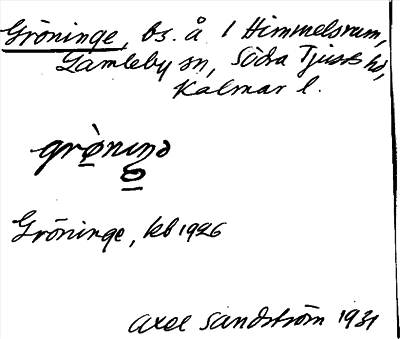 Gröninge, bs. å 1 Himmelsrum,
Gamleby sn, Södra Tjusts hd,
Kalmar l.
grö̀niŋə
Gröninge, kb 1926
Axel Sandström 1931